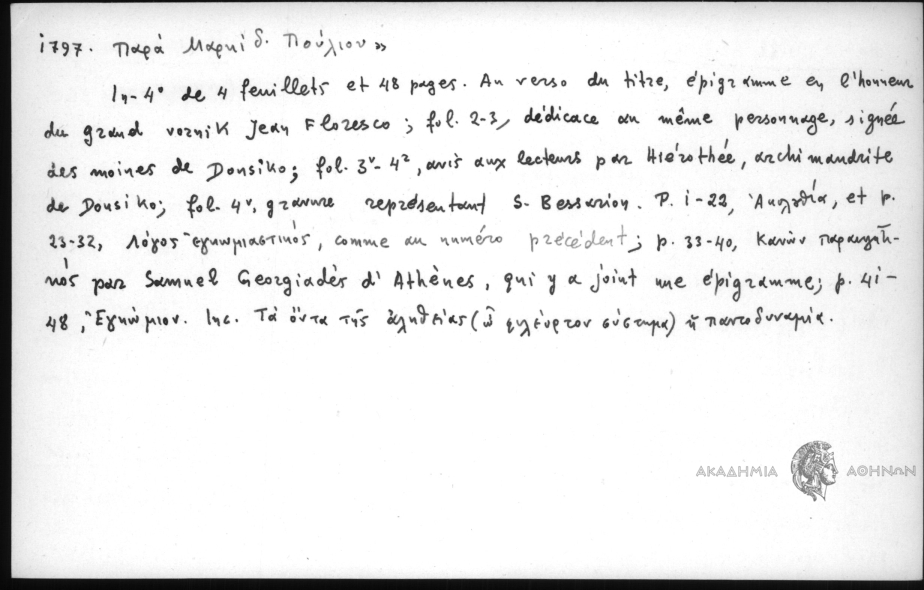 1797. Παρὰ Μαρκίδ. Πούλιου»
In-4° de 4 feuillets et 48 pages. Au verso du titre, épigramme en l'honneur
du grand vornik Jean Floresco; fol. 2-3, dédicace au même personnage, signée
des moines de Dousiko; fol. 3ᵛ-4ʳ, avis aux lecteurs par Hiérothée, archimandrite
de Dousiko; fol. 4ᵛ, gravure représentant S. Bessarion. P. 1-22, Ἀκολυθία, et p.
23-32, Λόγος ἐγκωμιαστικός, comme au numéro précédent; p. 33-40, Κανὼν παρακλητι-
κός par Samuel Georgiadès d'Athènes, qui y a joint une épigramme; p. 41-
48, Ἐγκώμιον. Inc. Τὰ ὄντα τῆς ἀληθείας (ὦ φιλέορτον σύστημα) ἡ παντοδυναμία.
ΑΚΑΔΗΜΙΑ ΑΘΗΝΩΝ